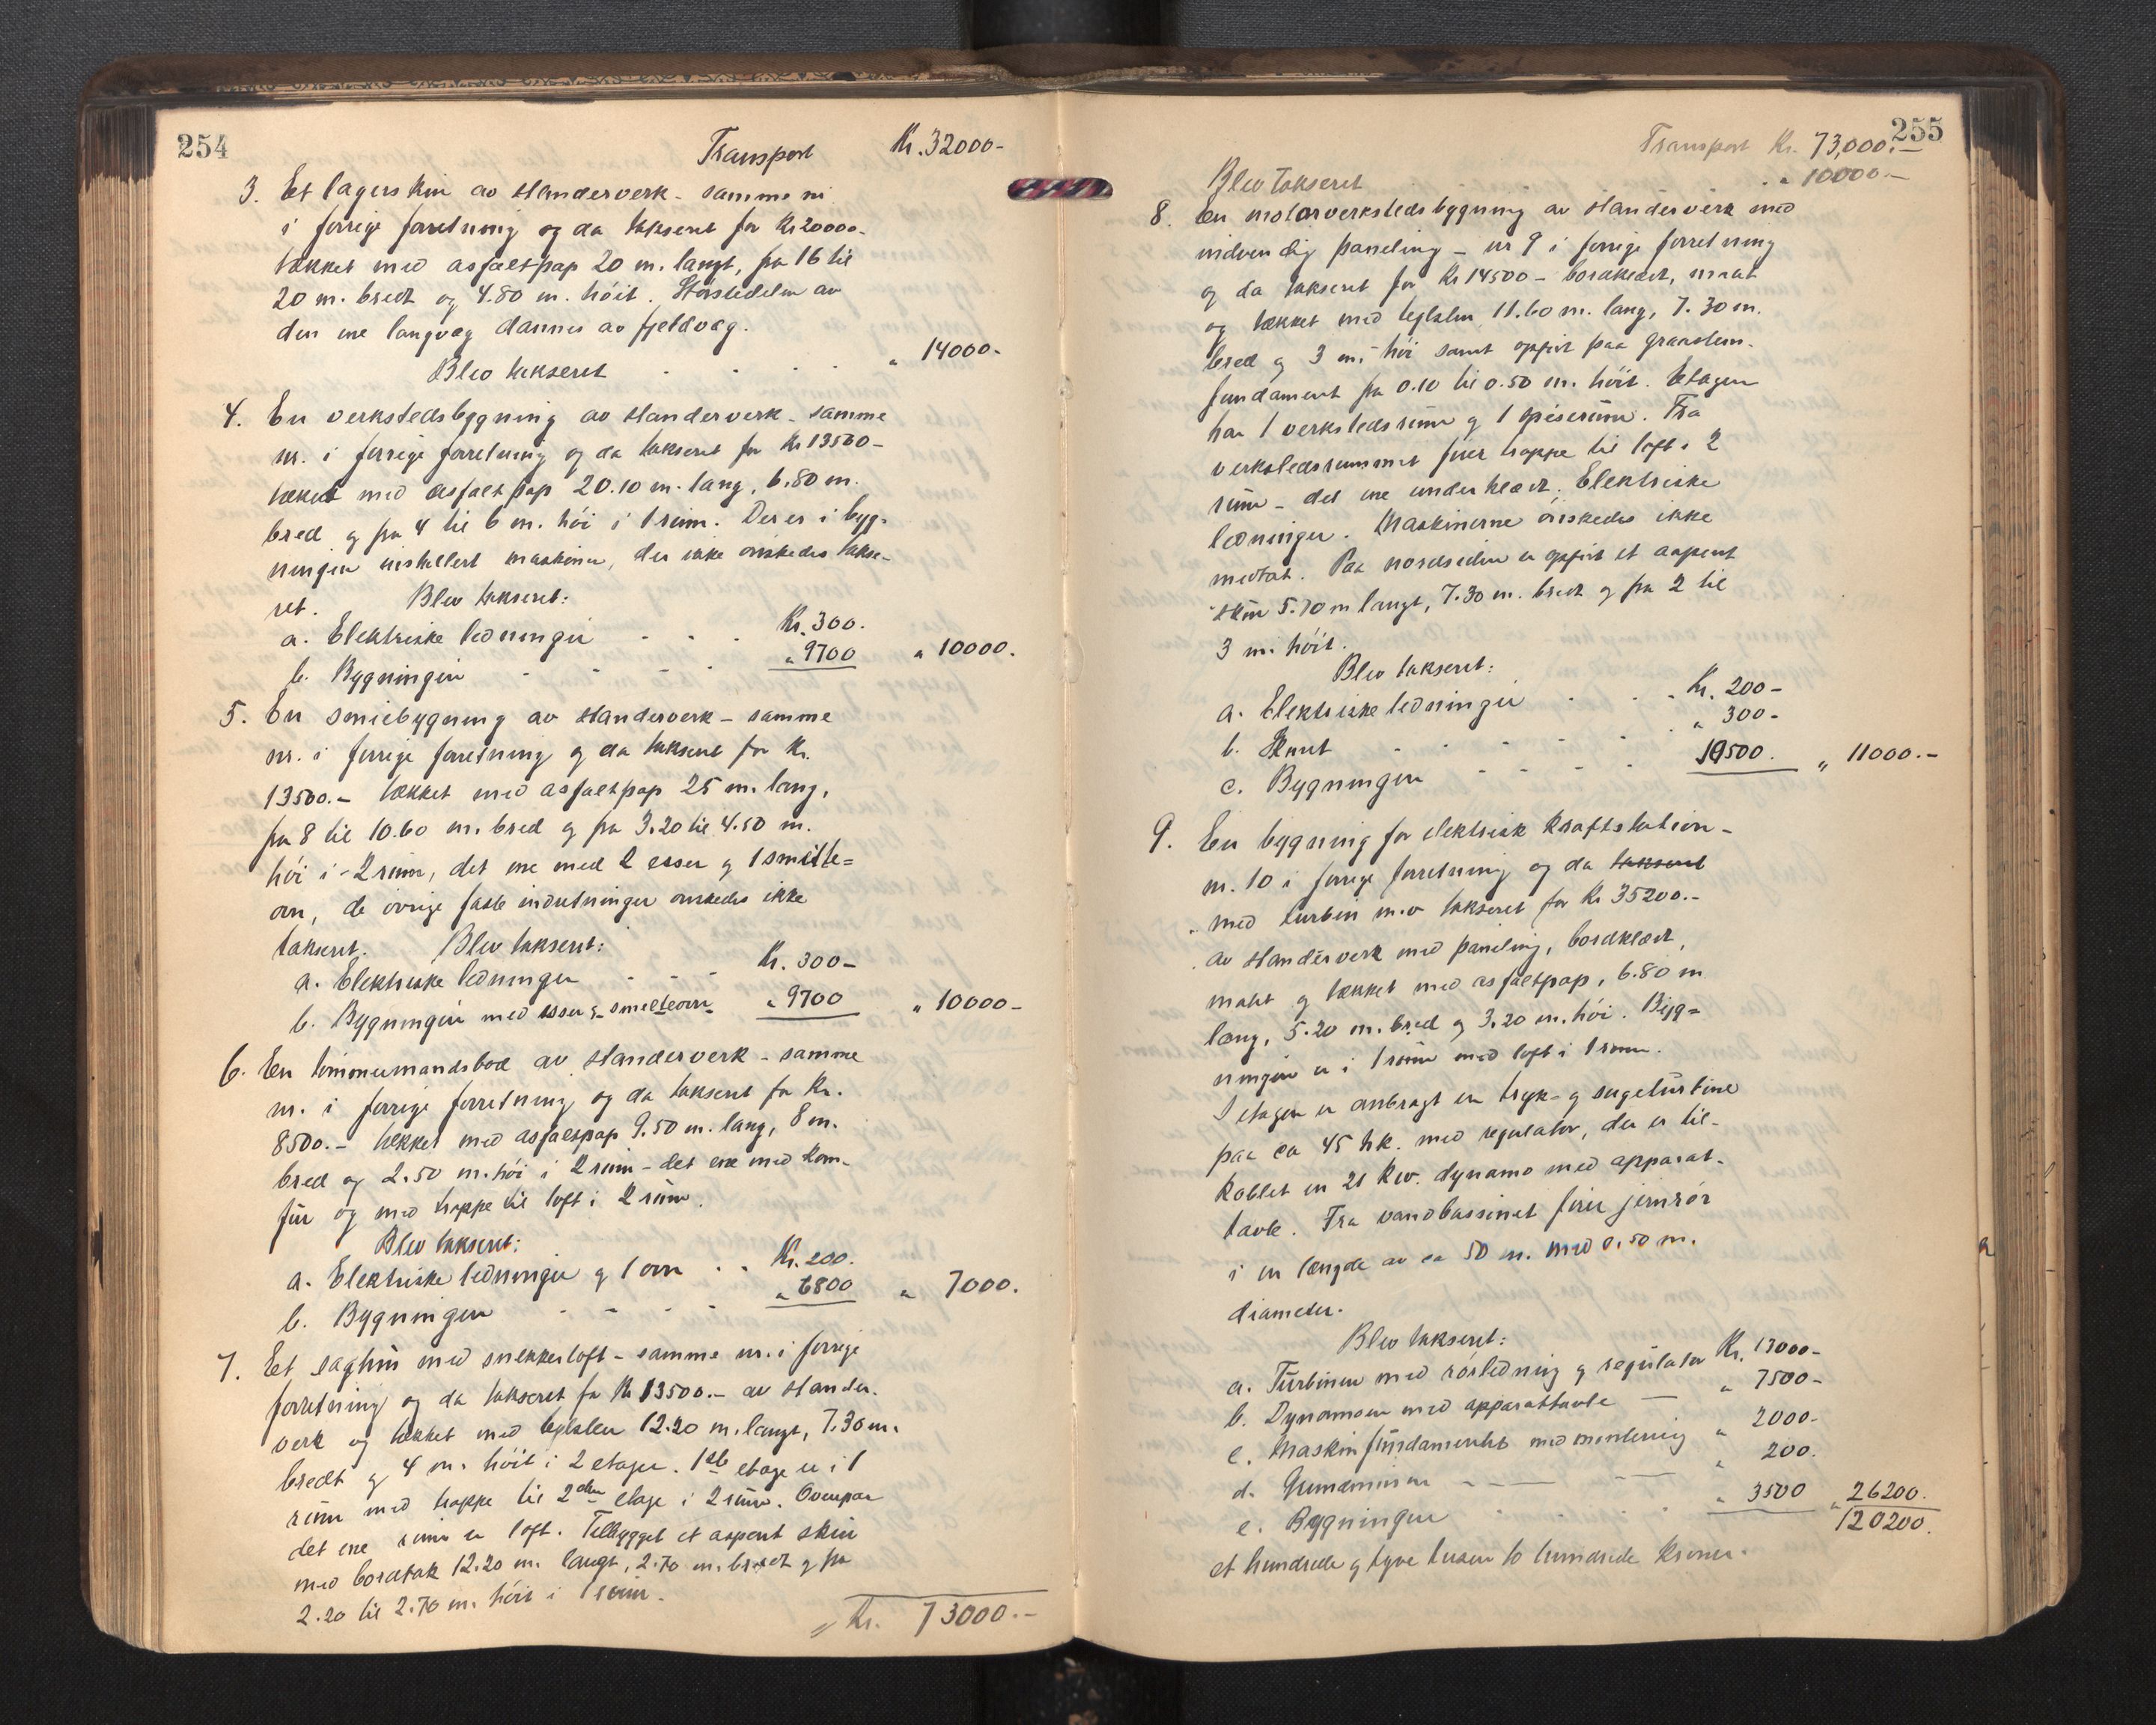 254
Transport Kr. 32000-
3. Et lagerskur av standerverk - samme nr
i forrige forretning og da takseret for Kr 20000-
tækket med asfaltpap 20 m. langt, fra 16 til
20 m. bredt og 4.80 m. höit. Störstedelen av
den ene langvæg dannes av fjeldvæg.
Blev takseret . . . . „ 14000-
4. En verkstedsbygning av standerverk - samme
nr. i forrige forretning og da takseret for Kr 13500-
tækket med asfaltpap 20.10 m. lang, 6.80 m.
bred og fra 4 til 6 m. höi i 1 rum. Der er i byg-
ningen installert maskiner, der ikke önskedes takse-
ret. Blev takseret:
a. Elektriske ledninger - . . Kr. 300.
b. Bygningen - - - . „ 9700 „ 10000.
5. En smiebygning av standerverk - samme
nr. i forrige forretning og da takseret for Kr.
13500.- tækket med asfaltpap 25 m. lang,
fra 8 til 10.60 m. bred og fra 3.20 til 4.50 m.
höi i 2 rum, det ene med 2 esser og 1 smelte=
ovn, de övrige faste indretninger önskedes ikke
takseret. Blev takseret:
a. Elektriske ledninger - - - Kr. 300-
b. Bygningen med esser og smelteovn „ 9700 „ 10000-
6. En tömmermandsbod av standerverk - samme
nr. i forrige forretning og da takseret for Kr.
8500.- tækket med asfaltpap 9.50 m. lang, 8 m.
bred og 2.50 m. höi i 2 rum - det ene med kom-
für og med trappe til loft i 2 rum.
Blev takseret:
a. Elektriske ledninger og 1 ovn . . Kr. 200.
b. Bygningen - - - - „ 6800 „ 7000.
7. Et saghus med snekkerloft - samme nr. i forrige
forretning og da takseret for Kr 13500.- av stander-
verk og tækket med teglsten 12.20 m. langt, 7.30 m.
bredt og 4 m. höit i 2 etager. 1ste etage er i 1
rum med trappe til 2den etage i 2 rum. Ovenpaa
det ene rum er loft. Tilbygget et aapent skur
med bordtak 12.20 m. langt, 2.70 m. bredt og fra
2.20 til 2.70 m. höit i 1 rum.
Kr. 73000.-
255
Transport Kr. 73,000.-
Blev takseret . „ 10000-
8. En motorverkstedsbygning av standerverk med
indvendig paneling - nr 9 i forrige forretning
og da takseret for Kr 14500 - bordklædt, malt
og tækket med teglsten, 11.60 m. lang, 7.30 m.
bred og 3 m. höi samt opfört paa graasten-
fundament fra 0.10 til 0.50 m. höit. Etagen
har 1 verkstedsrum og 1 spiserum. Fra
verkstedsrummet förer trappe til loft i 2
rum - det ene underklædt. Elektriske
ledninger. Maskinerne önskedes ikke
medtat. Paa nordsiden er opfört et aapent
skur 5.70 m langt, 7.30 m. bredt og fra 2 til
3 m. höit.
Blev takseret:
a. Elektriske ledninger . . . Kr. 200-
b. Skuret - - - - - . „ 300-
c. Bygningen - - - - 10500. „ 11000.-
9. En bygning for elektrisk kraftstation -
nr. 10 i forrige forretning og da takseret
med turbin m.v takseret for Kr 35200.-
av standerverk med paneling, bordklædt,
malet og tækket med asfaltpap, 6.80 m
lang, 5.20 m. bred og 3.20 m. höi. Byg=
ningen er i 1 rum med loft i 1 rum.
I etagen er anbragt en tryk- og sugeturbine
paa ca 45 hk. med regulator, der er til-
koblet en 21 kw. dynamo med apparat-
tavle. Fra vandbassinet förer jernrör
i en længde av ca 50 m. med 0.50 m.
diameter.
Blev takseret:
a. Turbinen med rörledning og regulator Kr. 13000-
b. Dynamoen med apparattavle — „ 7500-
c. Maskinfundamentet med montering „ 2000-
d. Grundmuren - — - — „ 200.
e. Bygningen . . . . . „ 3500 „ 26200.
120200.
et hundrede og tyve tusen to hundrede kroner.